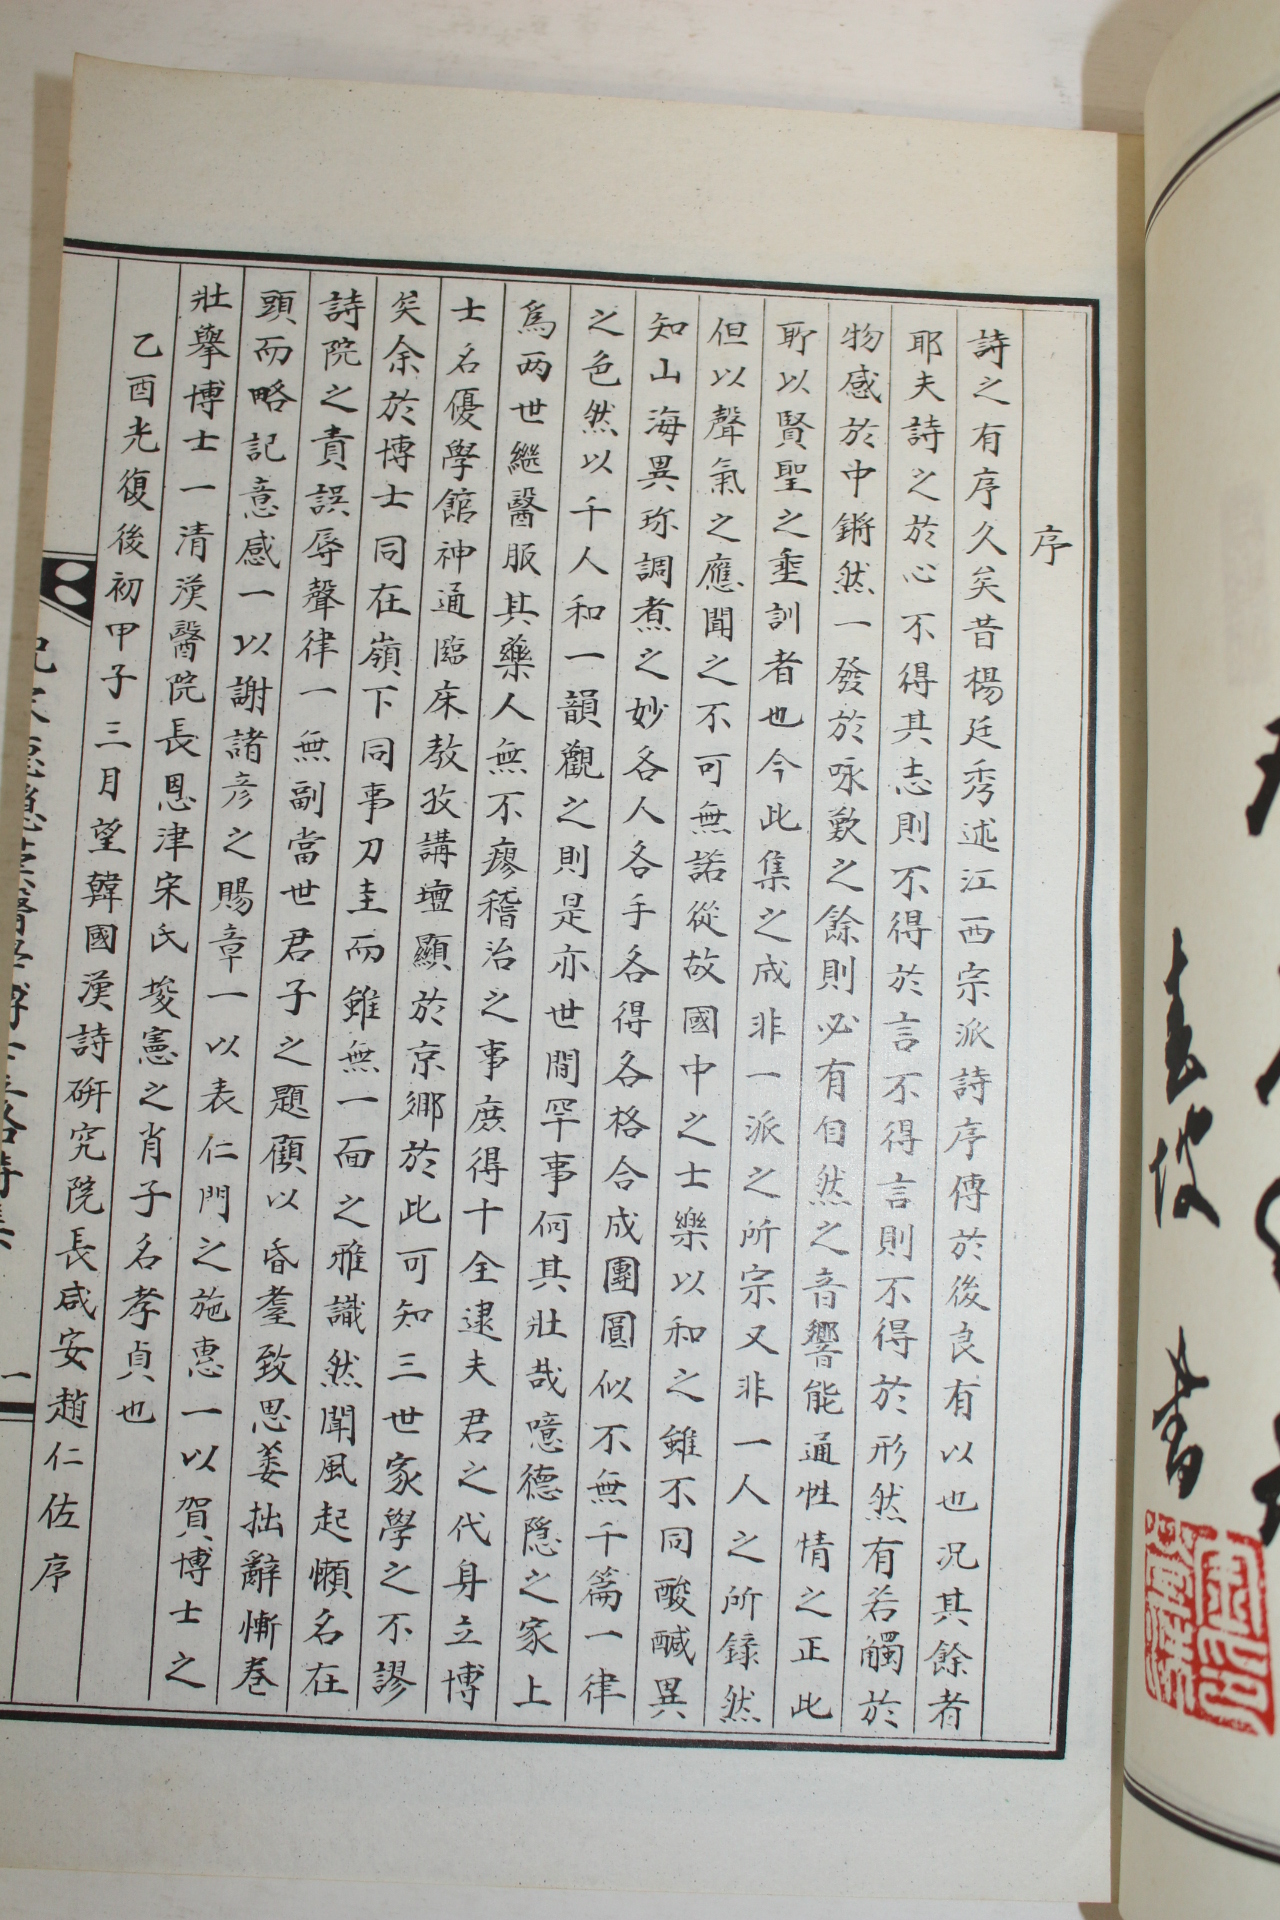 序
詩之有序久矣昔楊廷秀述江西宗派詩序傳於後良有以也况其餘者
耶夫詩之於心不得其志則不得於言不得言則不得於形然有若觸於
物感於中鏘然一發於咏歎之餘則必有自然之音響能通性情之正此
所以賢聖之垂訓者也今此集之成非一派之所宗又非一人之所録然
但以聲氣之應聞之不可無諾從故國中之士樂以和之雖不同酸醎異
知山海異珎調煮之妙各人各手各得各格合成團圓似不無千篇一律
之色然以千人和一韻觀之則是亦世間罕事何其壯哉噫德隐之家上
爲两世継醫服其藥人無不瘳稽治之事庶得十全逮夫君之代身立博
士名優學館神通臨床教孜講壇顯於京鄉於此可知三世家學之不謬
矣余於博士同在嶺下同事刀圭而雖無一面之雅識然聞風起懶名在
詩院之責誤辱聲律一無副當世君子之題顧以昏耋致思萎拙辭慚巻
頭而略記意感一以謝諸彦之賜章一以表仁門之施惠一以賀博士之
壯擧博士一清漢醫院長恩津宋氏埈憲之肖子名孝貞也
乙酉光復後初甲子三月望韓國漢詩硏究院長咸安趙仁佐序
一